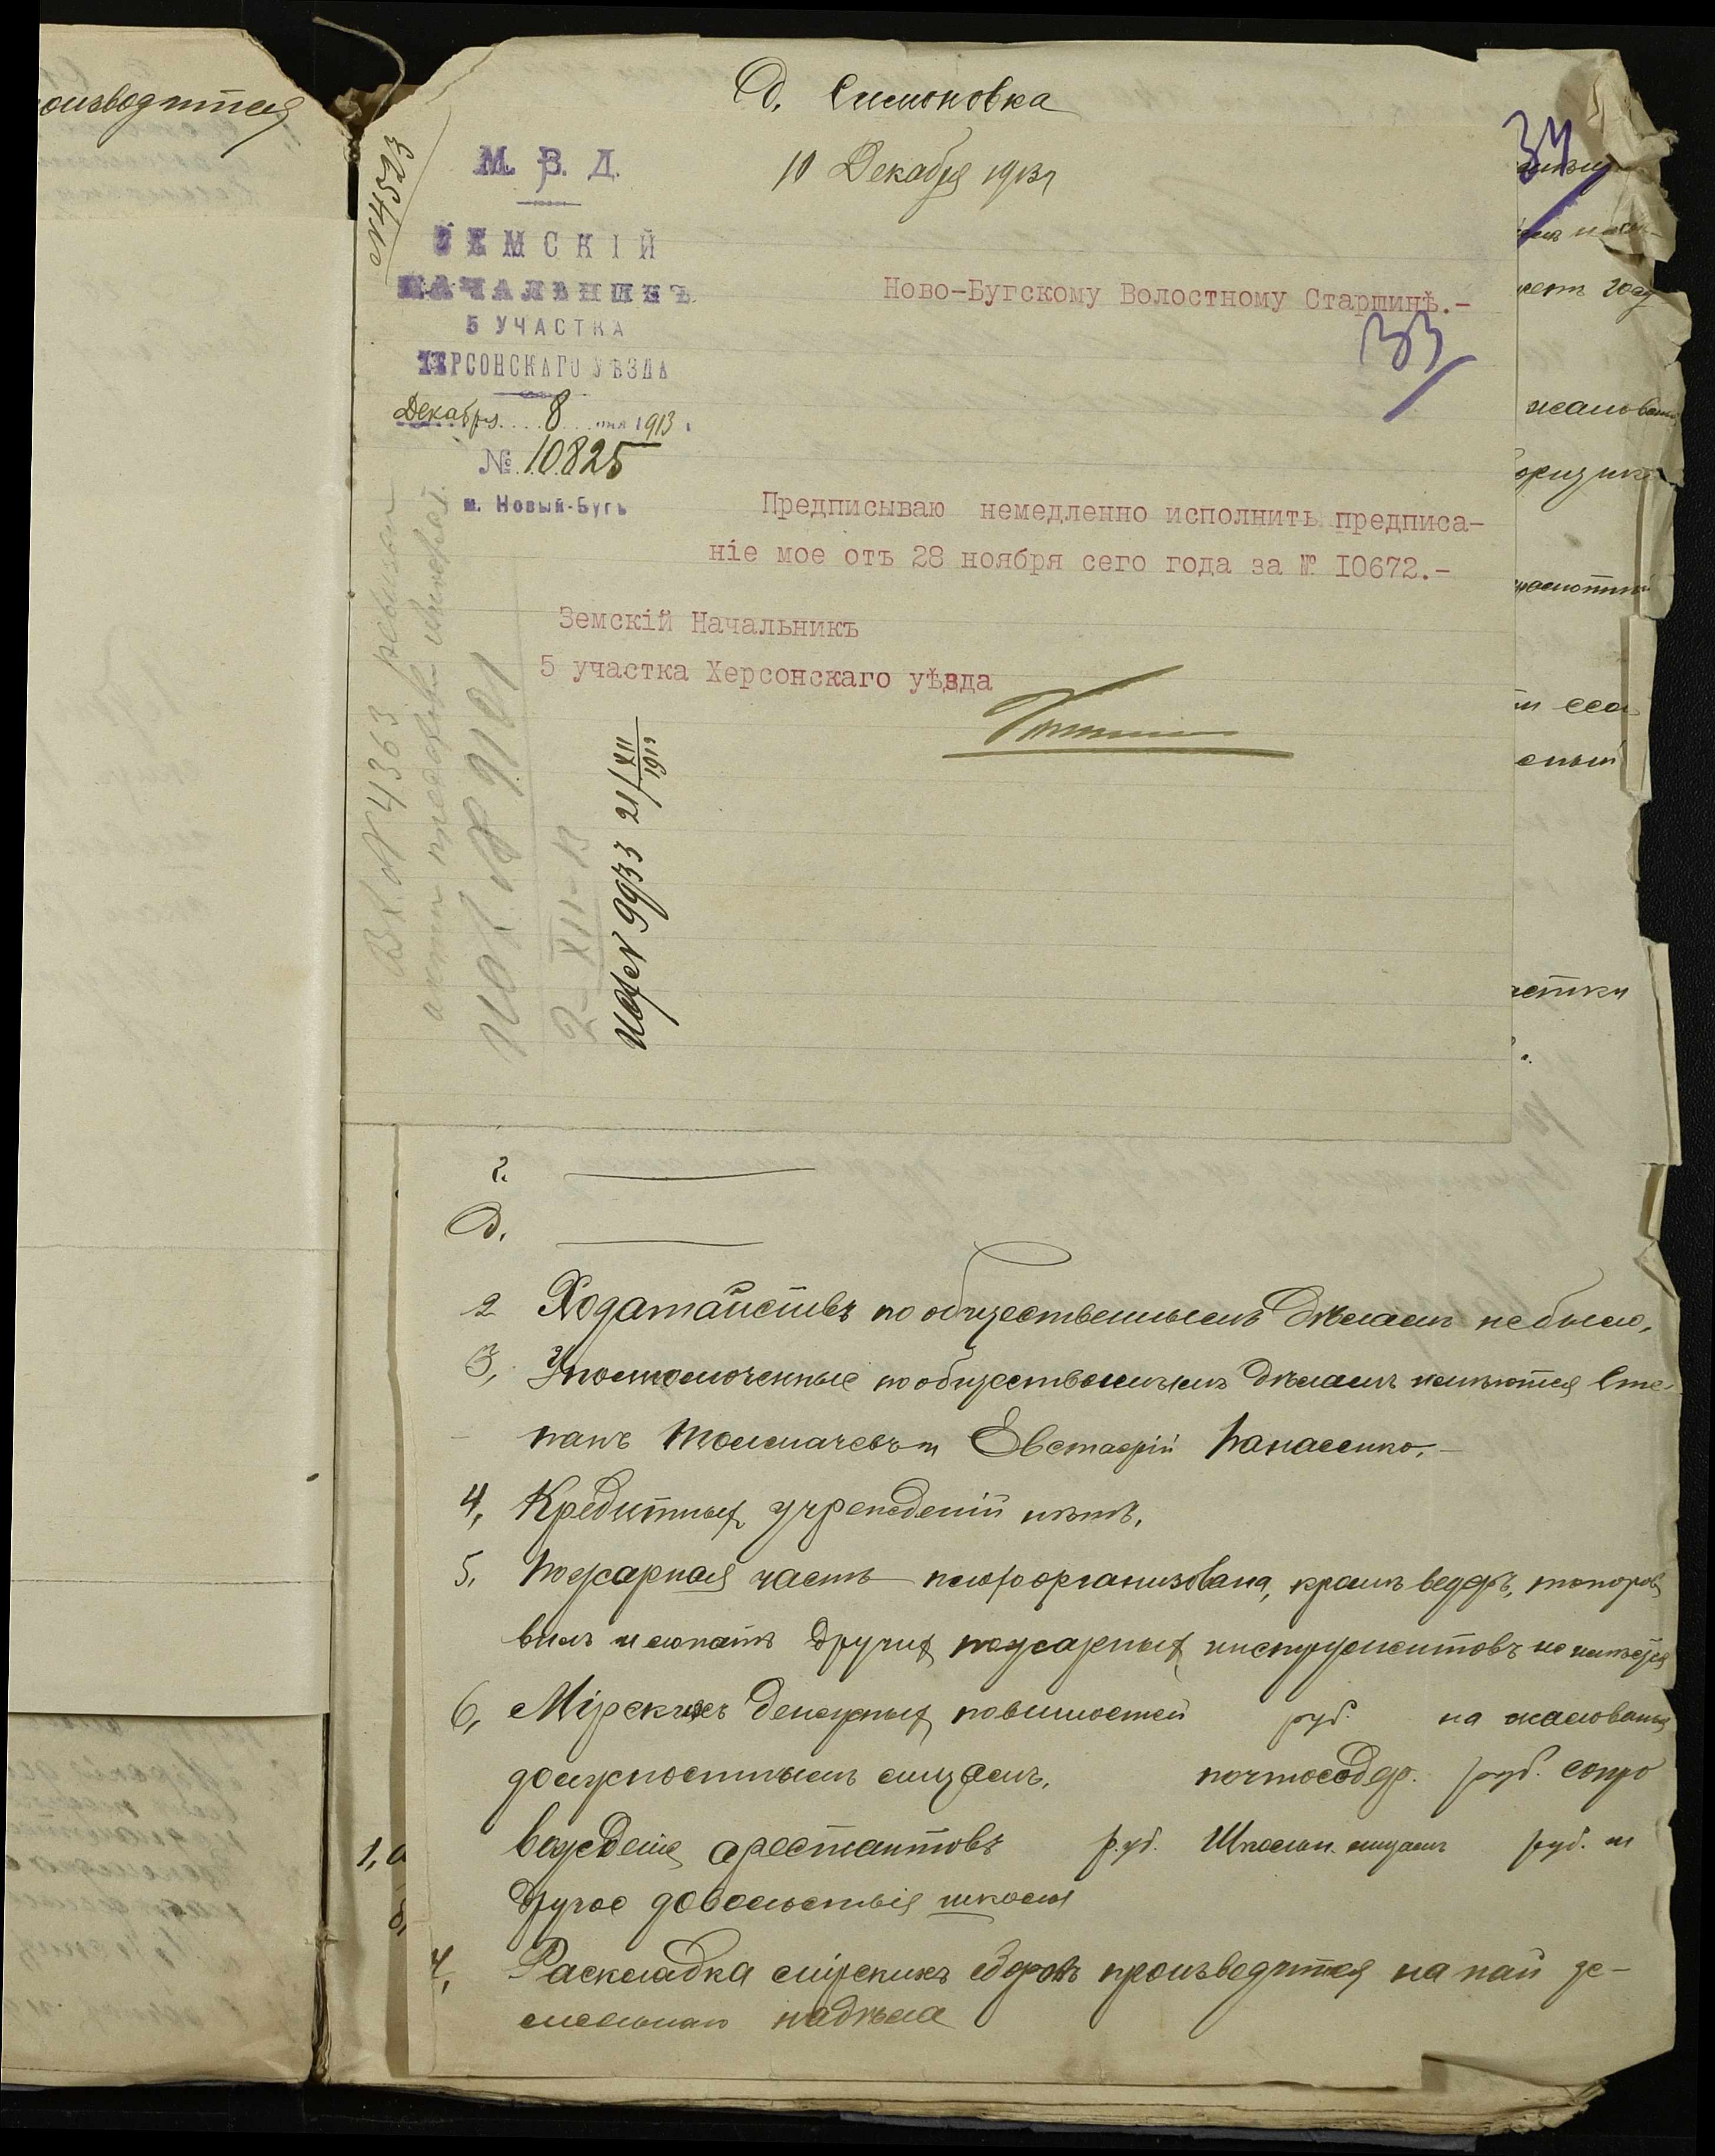 оизводится
Д. Симоновка
11 Декабря 1913 г
34
№ 4523
М. В. Д.
ЗЕМСКІЙ
НАЧАЛЬНИКЪ
5 УЧАСТКА
ХЕРСОНСКАГО УѢЗДА
Декабря 8 дня 1913 г.
№ 10825
м. Новый-Бугъ
Ново-Бугскому Волостному Старшинѣ.-
33
Предписываю немедленно исполнить предписа-
ніе мое отъ 28 ноября сего года за № 10672.-
Земскій Начальникъ
5 участка Херсонскаго уѣзда
Вх. № 4363
№ 9101
2-XII-13
Исх № 9933 21/XII 1913
г.
Д.
2 Ходатайствъ по общественнымъ дѣламъ не было.
3, Уполномоченные по общественнымъ дѣламъ имѣются Сте-
панъ Толмачевъ и Евстафій Панасенко.-
4, Кредитныхъ учрежденій нѣтъ.
5. Пожарная часть плохо организована, кромѣ ведеръ, топоровъ
вилъ и лопатъ другихъ пожарныхъ инструментовъ не имѣется
6, Мірскихъ денежныхъ повинностей руб. на жалованье
должностнымъ лицамъ, почтосодер. руб. сопро
вожденіе арестантовъ руб. Школьн. лицамъ руб. и
другое довольствія школы
7, Раскладка мірскихъ сборовъ производится на пай зе-
мельнаго надѣла
1, а
б,